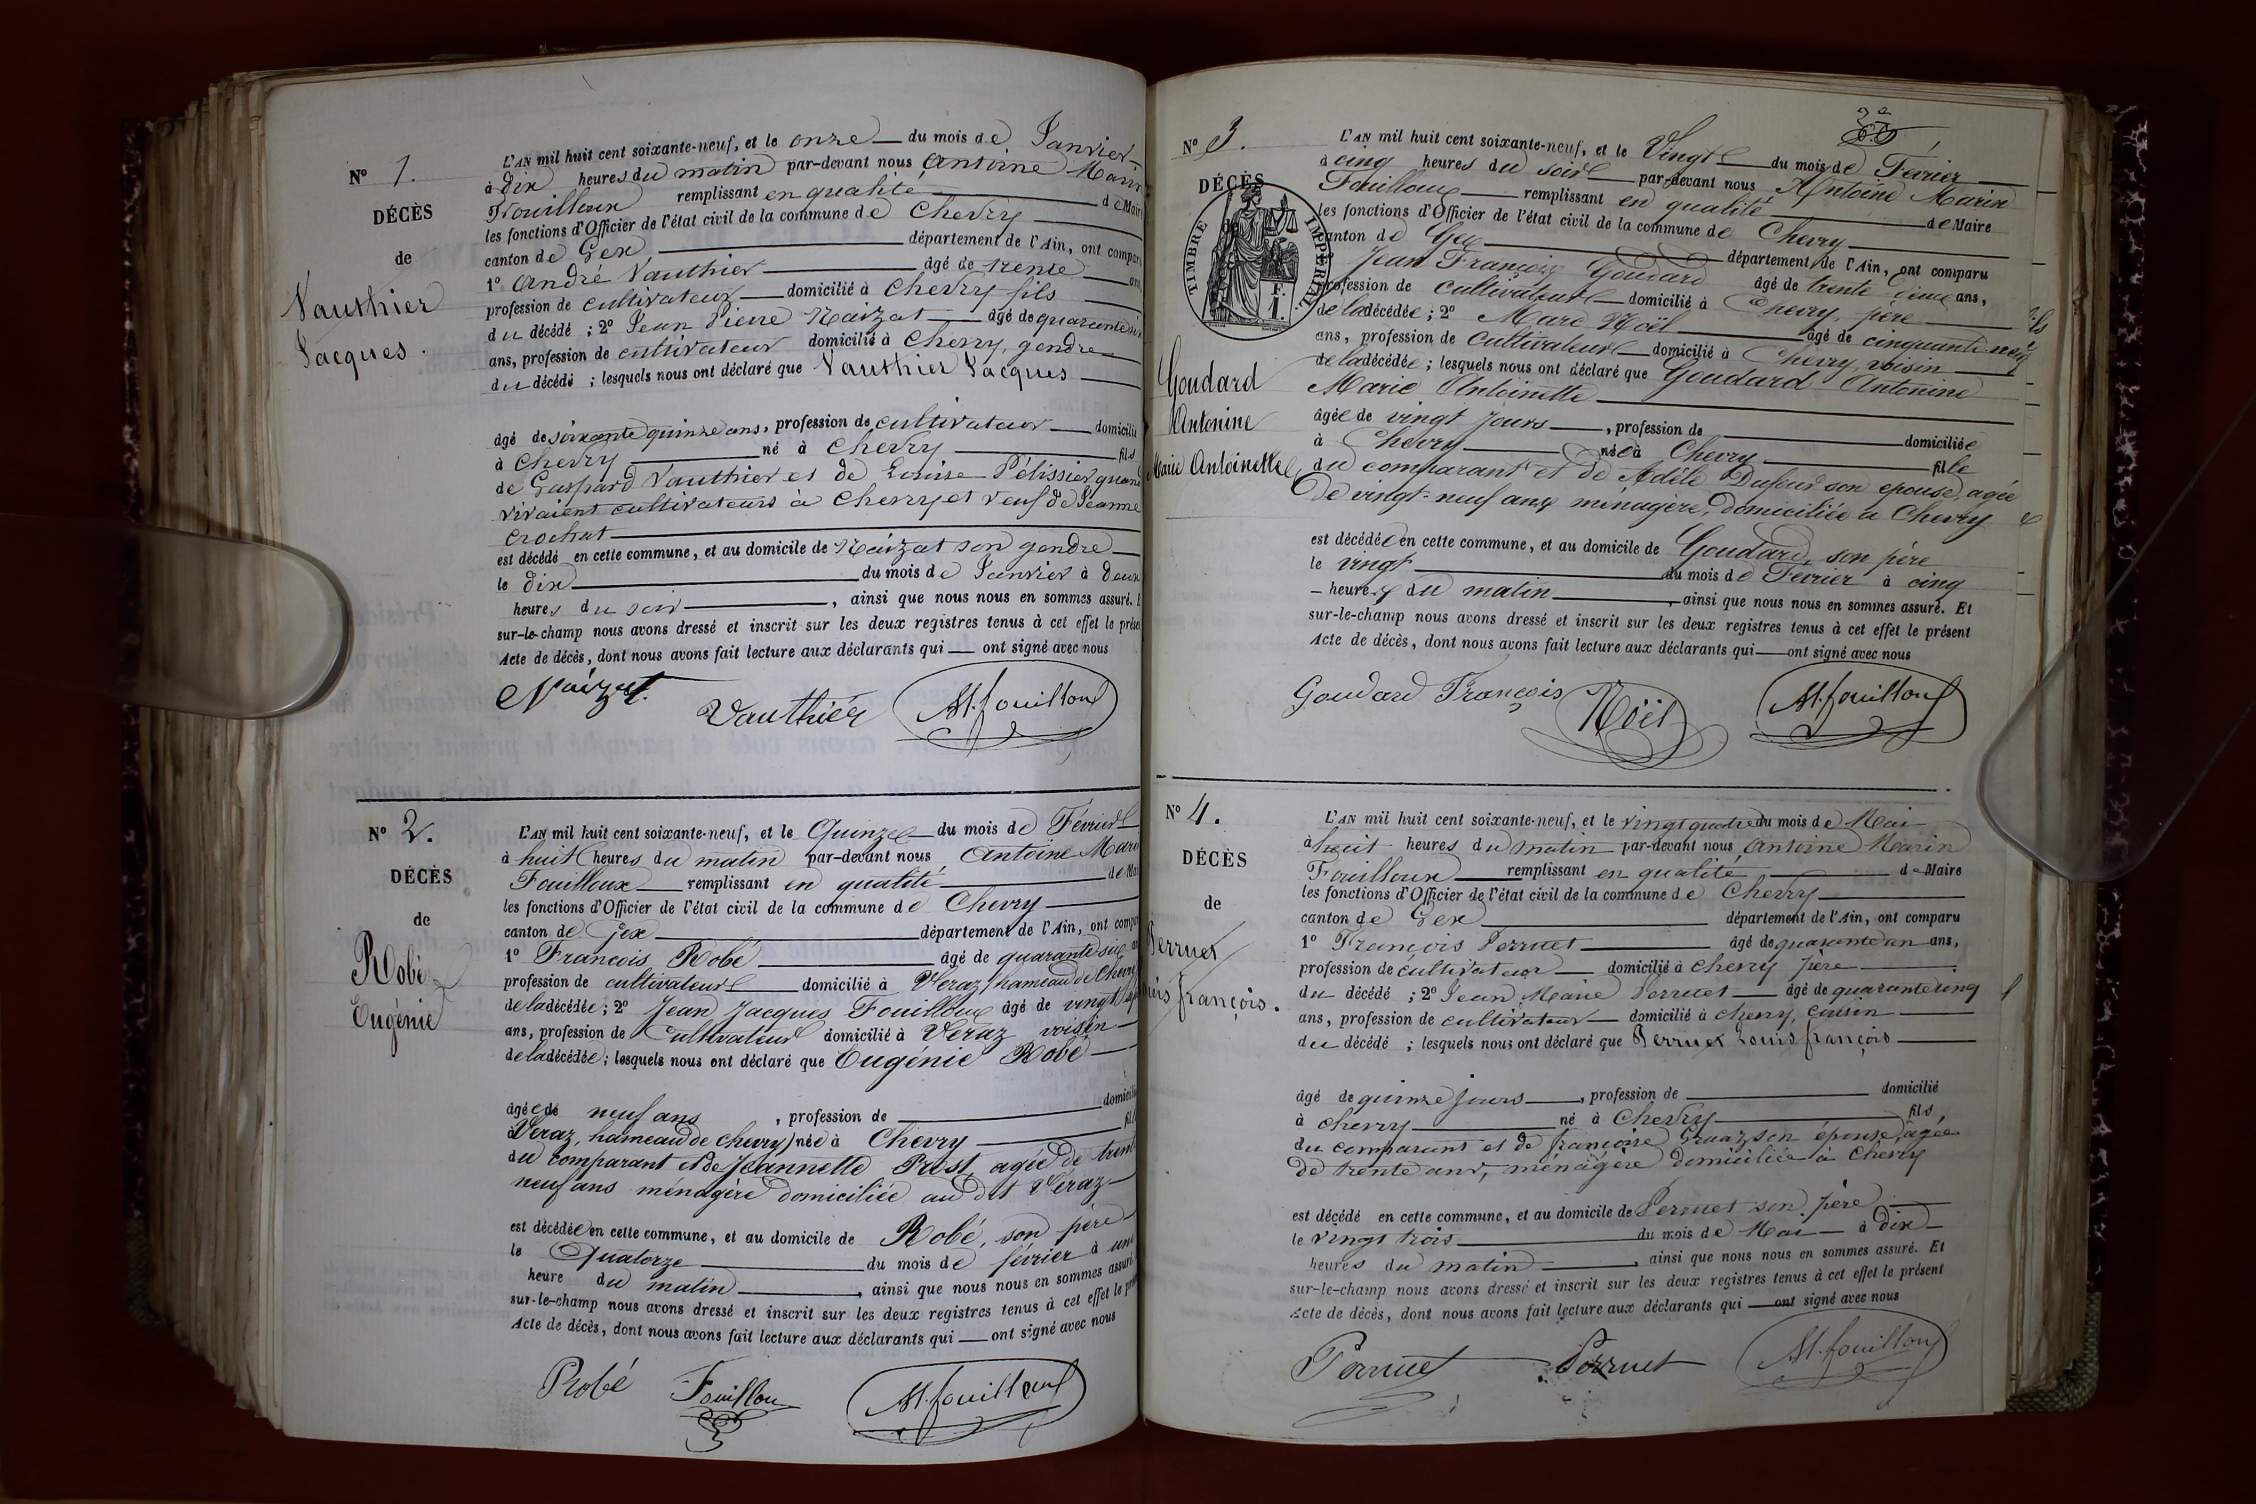 N° 1.
DÉCÈS
de
Vauthier
Jacques.
L'AN mil huit cent soixante-neuf, et le onze du mois de Janvier
à dix heures du matin par-devant nous Antoine Marin
Fouilloux remplissant en qualité de Maire
les fonctions d'Officier de l'état civil de la commune de Chevry
canton de Gex département de l'Ain, ont comparu
1° André Vauthier âgé de trente ans
profession de cultivateur domicilié à Chevry fils
du décédé ; 2° Jean Pierre Naizat âgé de quarante
ans, profession de cultivateur domicilié à Chevry, gendre
du décédé ; lesquels nous ont déclaré que Vauthier Jacques
âgé de soixante quinze ans, profession de cultivateur domicilié
à Chevry né à Chevry fils
de Gaspard Vauthier et de Louise Pélissier quand
vivaient cultivateurs à Chevry et veuf de Jeanne
Crochat
est décédé en cette commune, et au domicile de Naizat son gendre
le dix du mois de Janvier à deux
heures du soir, ainsi que nous nous en sommes assuré. E
sur-le-champ nous avons dressé et inscrit sur les deux registres tenus à cet effet le prése
Acte de décès, dont nous avons fait lecture aux déclarants qui ont signé avec nous
Naizat. Vauthier AM. fouilloux
N° 2.
DÉCÈS
de
Robé
Eugénie
L'AN mil huit cent soixante-neuf, et le Quinze du mois de Février
à huit heures du matin par-devant nous Antoine Mari
Fouilloux remplissant en qualité de Mai
les fonctions d'Officier de l'état civil de la commune de Chevry
canton de Gex département de l'Ain, ont compa
1° François Robé âgé de quarante six an
profession de cultivateur domicilié à Véraz, hameau de Chevry
de la décédée ; 2° Jean Jacques Fouilloux âgé de vingt
ans, profession de Cultivateur domicilié à Véraz voisin
de la décédée ; lesquels nous ont déclaré que Eugénie Robé
âgée de neuf ans, profession de domicili
à Véraz, hameau de Chevry) née à Chevry fill
du comparant et de Jeannette Prost, agée de trent
neuf ans ménagère domiciliée au dit Véraz
est décédée en cette commune, et au domicile de Robé, son père
le Quatorze du mois de février à une
heure du matin, ainsi que nous nous en sommes assuré.
sur-le-champ nous avons dressé et inscrit sur les deux registres tenus à cet effet le pré
Acte de décès, dont nous avons fait lecture aux déclarants qui ont signé avec nous
Robé Fouillou AM. fouilloux
N° 3.
DÉCÈS
de
TIMBRE IMPÉRIAL
1 F.
Goudard
Antonine
Marie Antoinette
L'AN mil huit cent soixante-neuf, et le Vingt du mois de Février
à cinq heures du soir par-devant nous Antoine Marin
Fouilloux remplissant en qualité de Maire
les fonctions d'Officier de l'état civil de la commune de Chevry
canton de Gex département de l'Ain, ont comparu
Jean François Goudard âgé de trente deux ans,
profession de cultivateur domicilié à Chevry, père
de la décédée ; 2° Marc Noël âgé de cinquante neuf
ans, profession de cultivateur domicilié à Chevry, voisin
de la décédée ; lesquels nous ont déclaré que Goudard Antonine
Marie Antoinette
âgée de vingt jours, profession de domiciliée
à Chevry née à Chevry fille
du comparant et de Adèle Dufour son épouse, agée
de vingt-neuf ans, ménagère, domiciliée à Chevry
est décédée en cette commune, et au domicile de Goudard, son père
le vingt du mois de Février à cinq
heures du matin, ainsi que nous nous en sommes assuré. Et
sur-le-champ nous avons dressé et inscrit sur les deux registres tenus à cet effet le présent
Acte de décès, dont nous avons fait lecture aux déclarants qui ont signé avec nous
Goudard François Noël AM. fouilloux
N° 4.
DÉCÈS
de
Perruet
François.
L'AN mil huit cent soixante-neuf, et le vingt quatre du mois de Mai
à huit heures du matin par-devant nous Antoine Marin
Fouilloux remplissant en qualité de Maire
les fonctions d'Officier de l'état civil de la commune de Chevry
canton de Gex département de l'Ain, ont comparu
1° François Perruet âgé de quarante un ans,
profession de cultivateur domicilié à Chevry père
du décédé ; 2° Jean Marie Perruet âgé de quarante cinq
ans, profession de cultivateur domicilié à Chevry, cousin
du décédé ; lesquels nous ont déclaré que Perruet Louis françois
âgé de quinze jours, profession de domicilié
à Chevry né à Chevry fils,
du comparant et de françoise son épouse, agée
de trente ans, ménagère domiciliée à Chevry
est décédé en cette commune, et au domicile de Perruet son père
le vingt trois du mois de Mai à dix
heures du matin, ainsi que nous nous en sommes assuré. Et
sur-le-champ nous avons dressé et inscrit sur les deux registres tenus à cet effet le présent
Acte de décès, dont nous avons fait lecture aux déclarants qui ont signé avec nous
Perruet Perruet AM. fouilloux